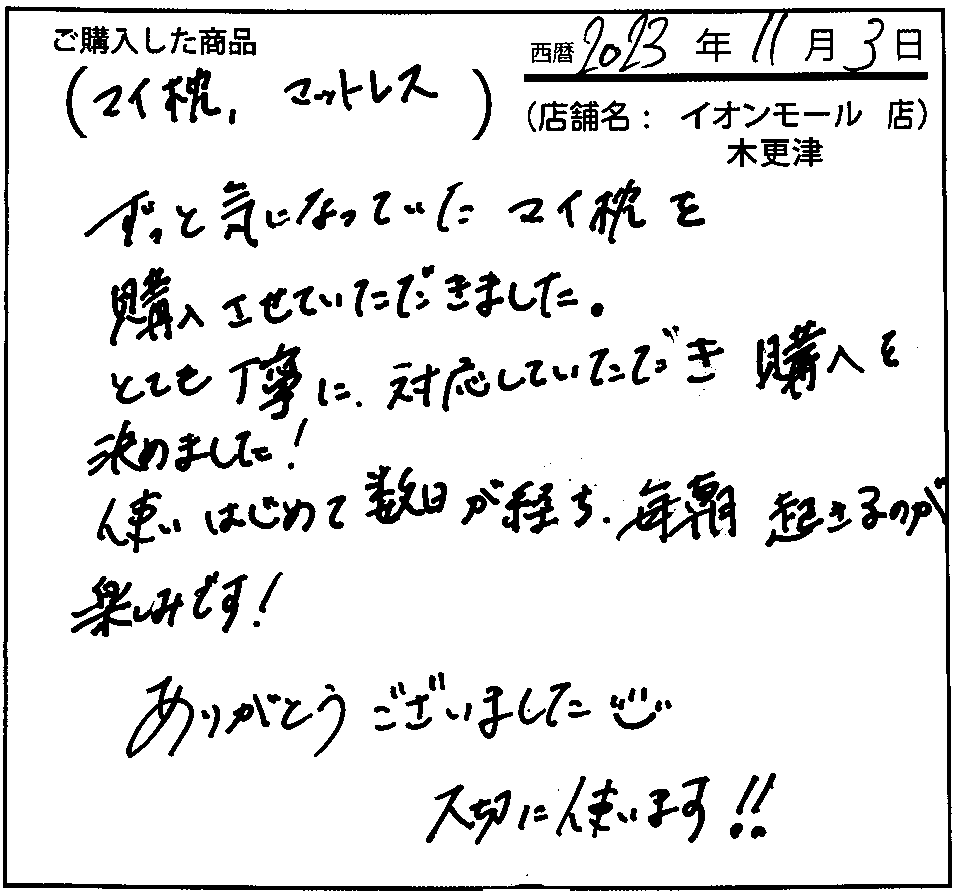 ご購入した商品
西暦2023年11月3日
(マイ枕, マットレス)
(店舗名： イオンモール 店)
木更津
ずっと気になっていたマイ枕を
購入させていただきました。
とても丁寧に、対応していただき購入を
決めました!
使いはじめて数日が経ち、毎朝起きるのが
楽しみです!
ありがとうございました
大切に使います!!